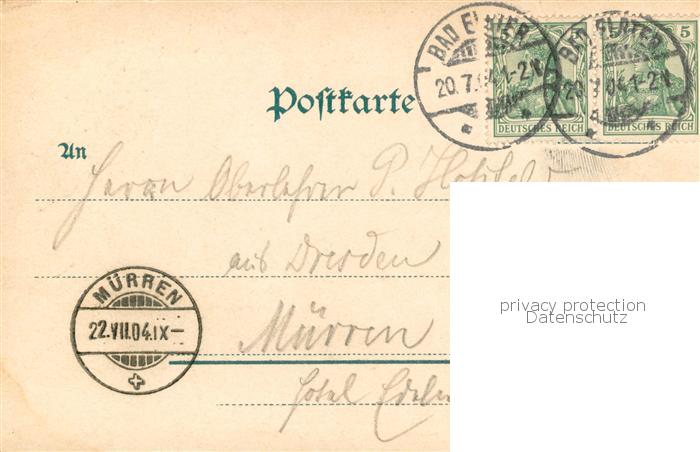 BAD ELSTER
20.7.04.1-2N.
BAD ELSTER
20.7.04.1-2N.
5
DEUTSCHES REICH
DEUTSCHES REICH
Postkarte
An
Herrn Oberlehrer P.
aus Dresden
MÜRREN
22.VII.04.IX—
Mürren
Hotel
privacy protection
Datenschutz